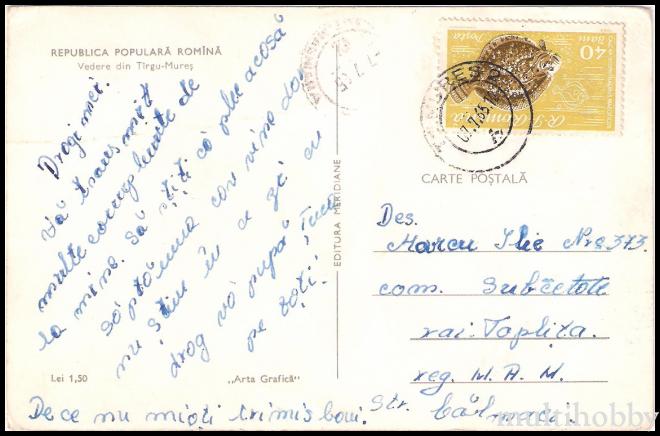 REPUBLICA POPULARĂ ROMÎNĂ
Vedere din Tîrgu-Mureș
Dragi mei!
Vă transmit
multe complimente de
la mine. Să știți că plec acasă
săptămîna care vine dar
nu știm în ce zi cu
drag vă pupă Tuta
pe toți!
De ce nu mioți trimis bani.
Lei 1,50
„Arta Grafică”
EDITURA MERIDIANE
40
Posta
R.P. Romina
07.7.63
CARTE POȘTALĂ
Des.
Marcu Ilie Nr. 373.
com. Subcetate
rai. Toplița.
reg. M. A. M.
str. Călimani
multihobby